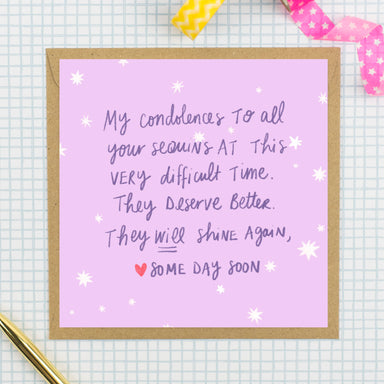 My condolences To all
your sequins AT This
VERY difficult Time.
They Deserve Better.
They will SHINE AGAIN,
SOME DAY SOON